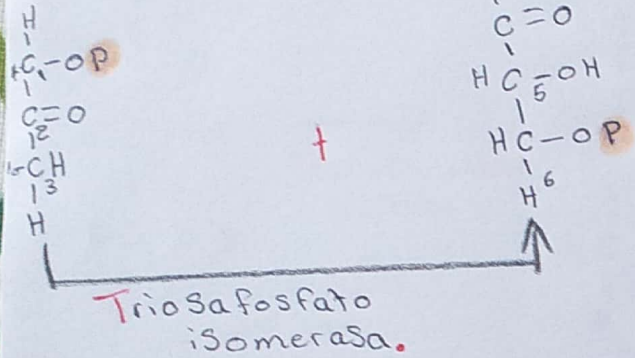 H
C1-OP
C=O
2
CH
3
H
+
C=O
HC-OH
5
HC-OP
6
H
Triosafosfato
isomerasa.